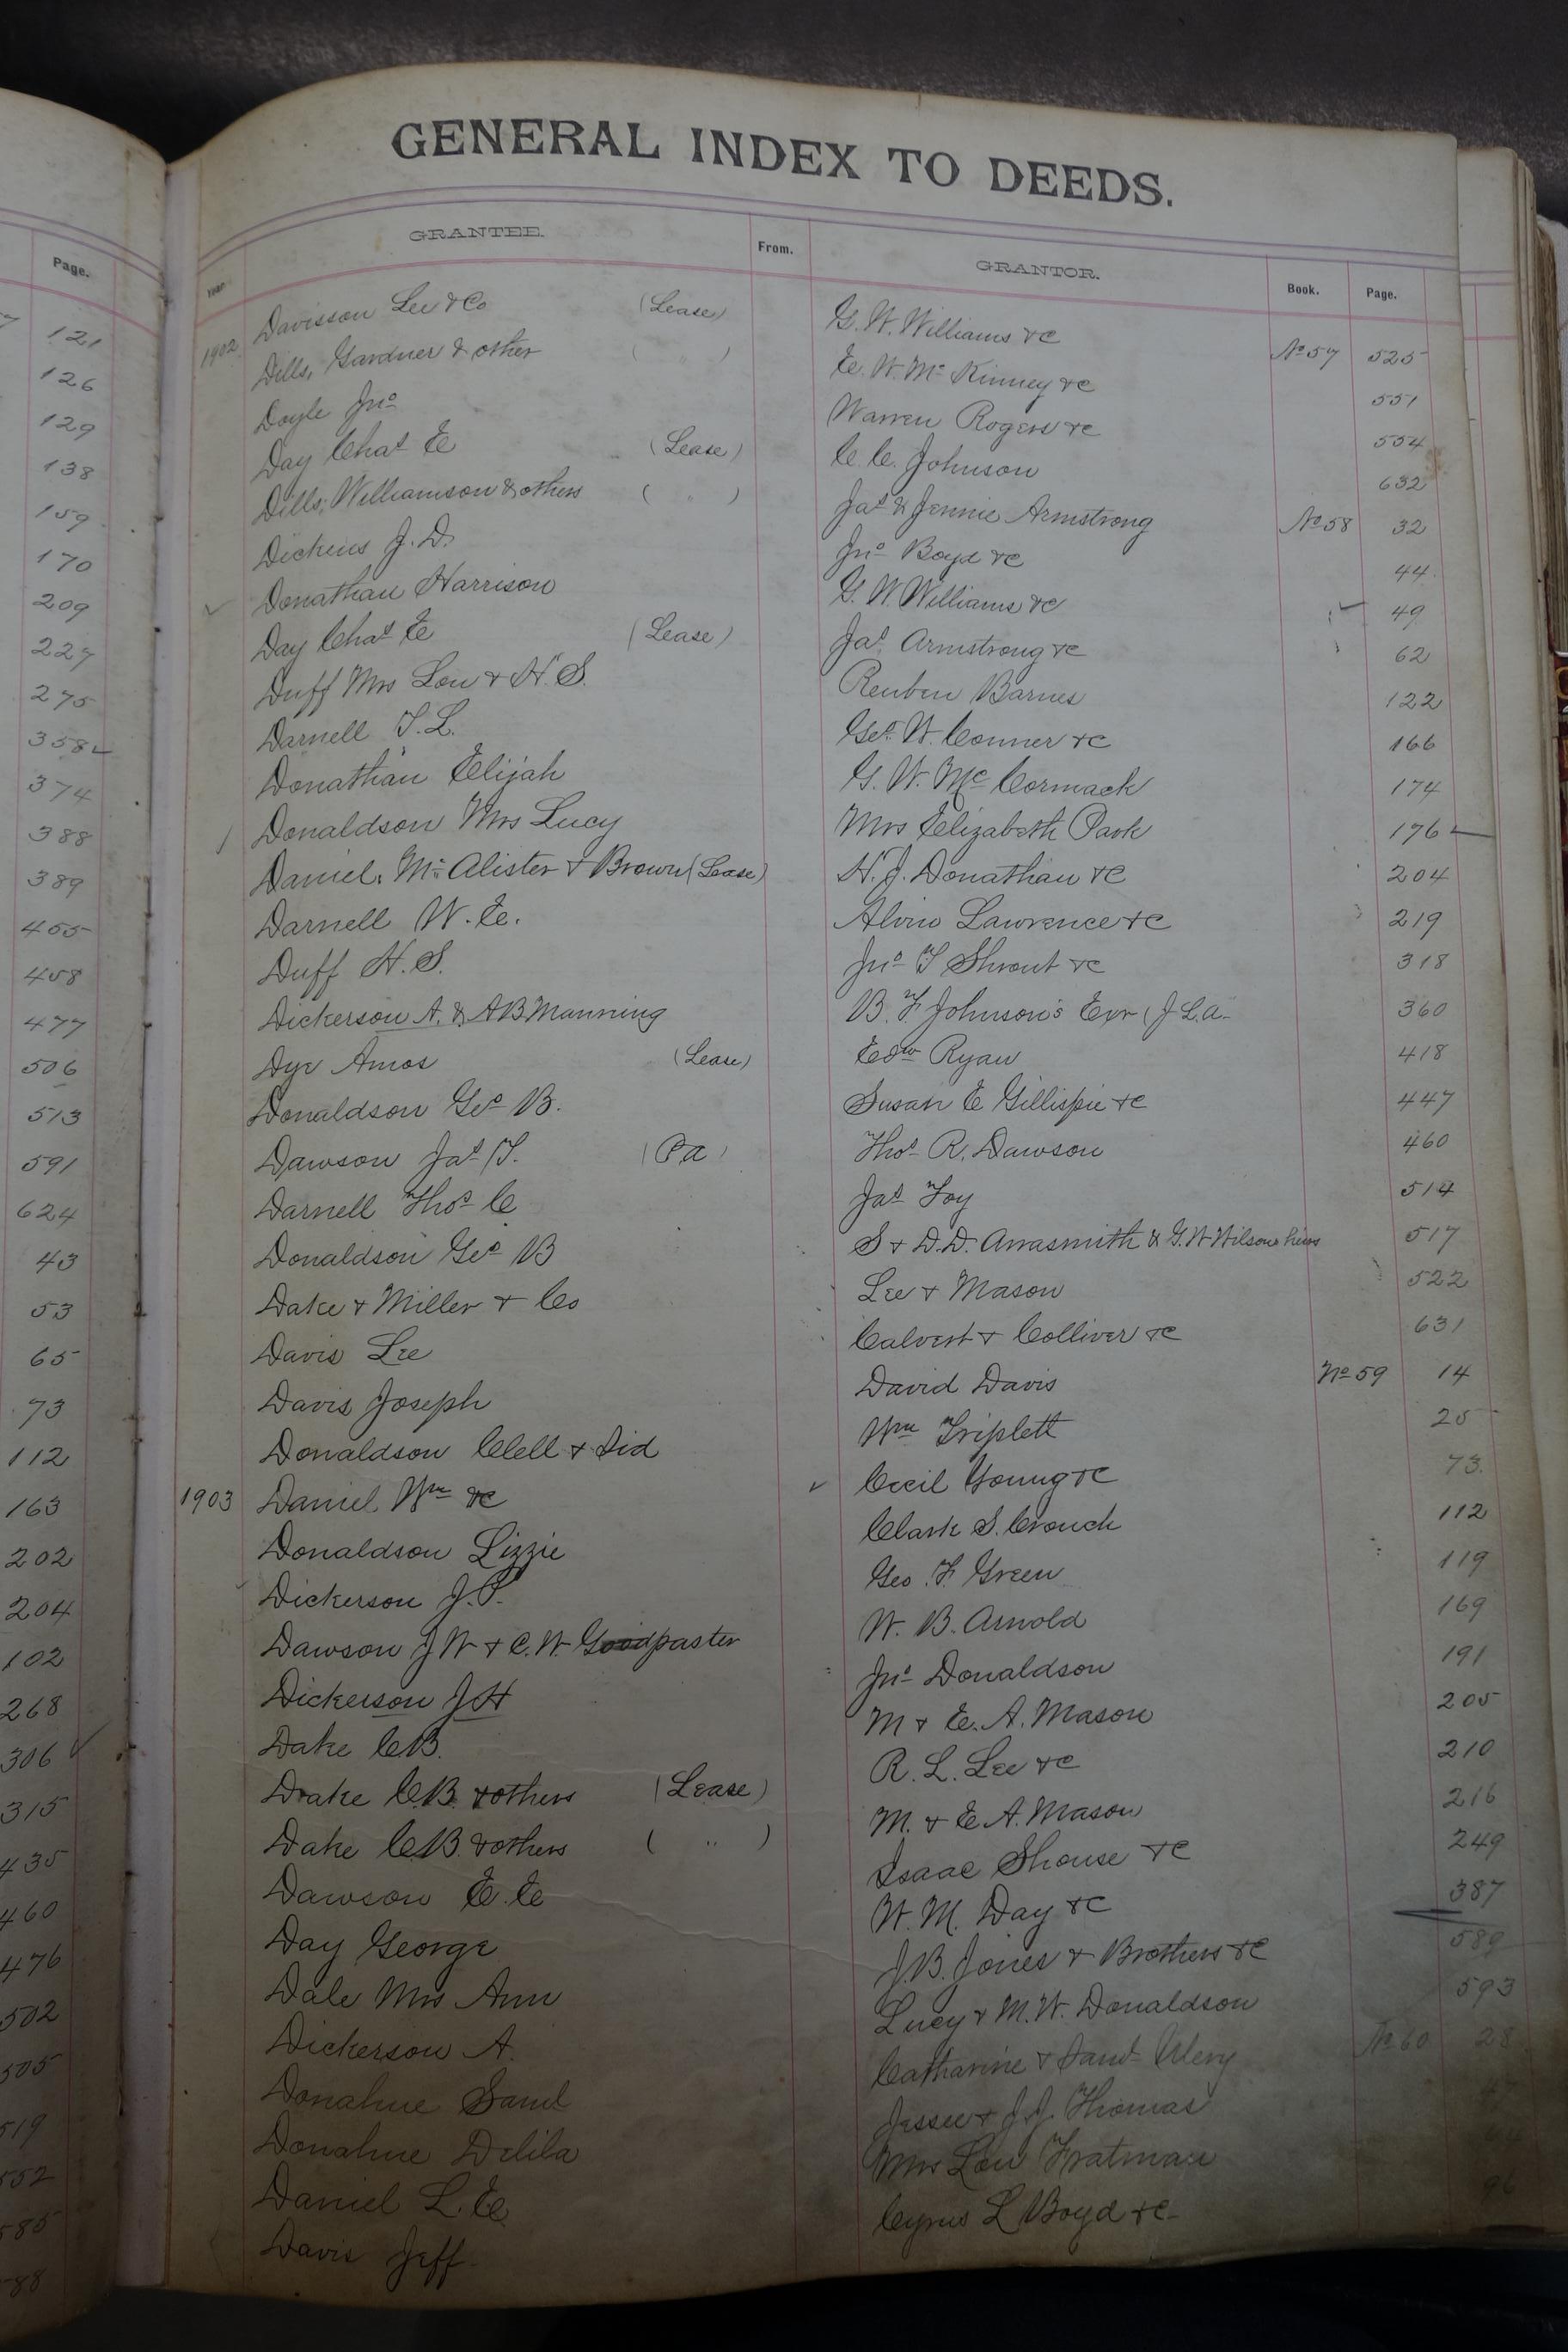 Page.
121
126
129
138
159
170
209
227
275
358
374
388
389
455
458
477
506
513
591
624
43
53
65
73
112
163
202
204
102
268
306
315
435
460
476
502
505
519
552
585
88
GENERAL INDEX TO DEEDS.
Year. GRANTEE. From. GRANTOR. Book. Page.
1902 Davisson Lee & Co (Lease) G. W. Williams &c No 57 525
Dills, Gardner & other ( " ) E. W. Mc Kinney &c 551
Doyle Jno Warren Rogers &c 554
Day Chas E (Lease) C. C. Johnson 632
Dills, Williamson & others ( " ) Jas & Jennie Armstrong No 58 32
Dickens J. D. Jno Boyd &c 44
Donathan Harrison G. W. Williams &c 49
Day Chas E (Lease) Jas Armstrong &c 62
Duff Mrs Lou & H. S. Reuben Barnes 122
Darnell T. L. Geo. W. Conner &c 166
Donathan Elijah G. W. Mc Cormack 174
Donaldson Mrs Lucy Mrs Elizabeth Park 176
Daniel, Mc Alister & Brown (Lease) H. J. Donathan &c 204
Darnell W. E. Alvin Lawrence &c 219
Duff H. S. Jno T Shrout &c 318
Dickerson A. & AB Manning B. F Johnson's Exr (J L.a. 360
Dye Amos (Lease) Edw Ryan 418
Donaldson Geo B. Susan E Gillispie &c 447
Dawson Jas T. (Pa) Thos R. Dawson 460
Darnell Thos C Jas Foy 514
Donaldson Geo B S & D.D. Arrasmith & G. W Wilsons heirs 517
Dake & Miller & Co Lee & Mason 522
Davis Lee Calvert & Colliver &c 631
Davis Joseph David Davis No 59 14
Donaldson Clell & Sid Wm Triplett 25
1903 Daniel Wm &c Cecil Young &c 73
Donaldson Lizzie Clark S. Crouch 112
Dickerson J. P. Geo. F. Green 119
Dawson J W & C. W. Goodpaster W. B. Arnold 169
Dickerson J H Jno Donaldson 191
Dake C.B. M & E. A. Mason 205
Drake C.B. & others (Lease) R. L. Lee &c 210
Dake C.B. & others ( " ) M. & E. A. Mason 216
Dawson E. E Isaac Shouse &c 249
Day George W. M. Day &c 387
Dale Mrs Ann J. B. Jones & Brothers &c 589
Dickerson A. Lucy & M. W. Donaldson 593
Donahue Saml Catharine & Saml Ulery No 60 28
Donahue Delila Jesse & J. J. Thomas
Daniel L. E Mrs Lou Fratman
Davis Jeff Cyrus L Boyd &c 96